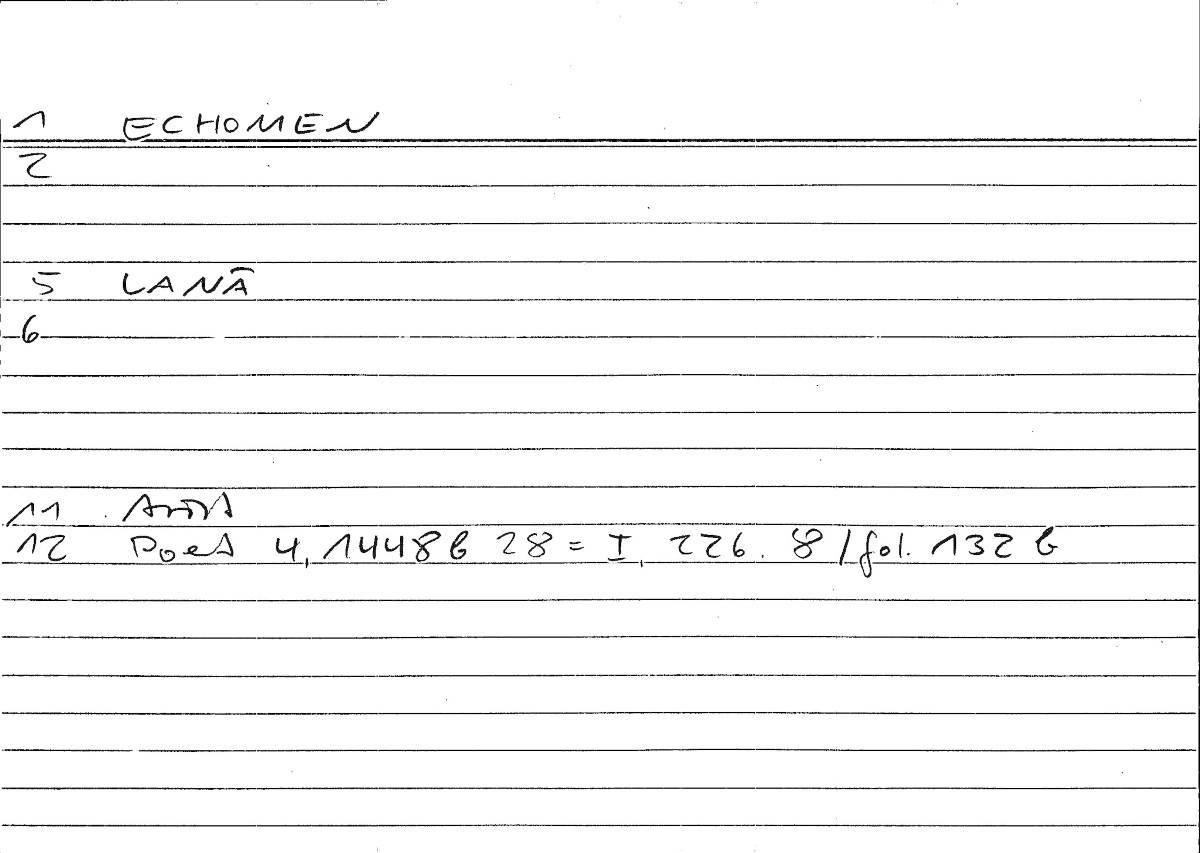 1 ECHOMEN
2
5 LANĀ
6
11 Arist
12 Poet 4, 1448b 28 = I, 226. 8 / fol. 132 b